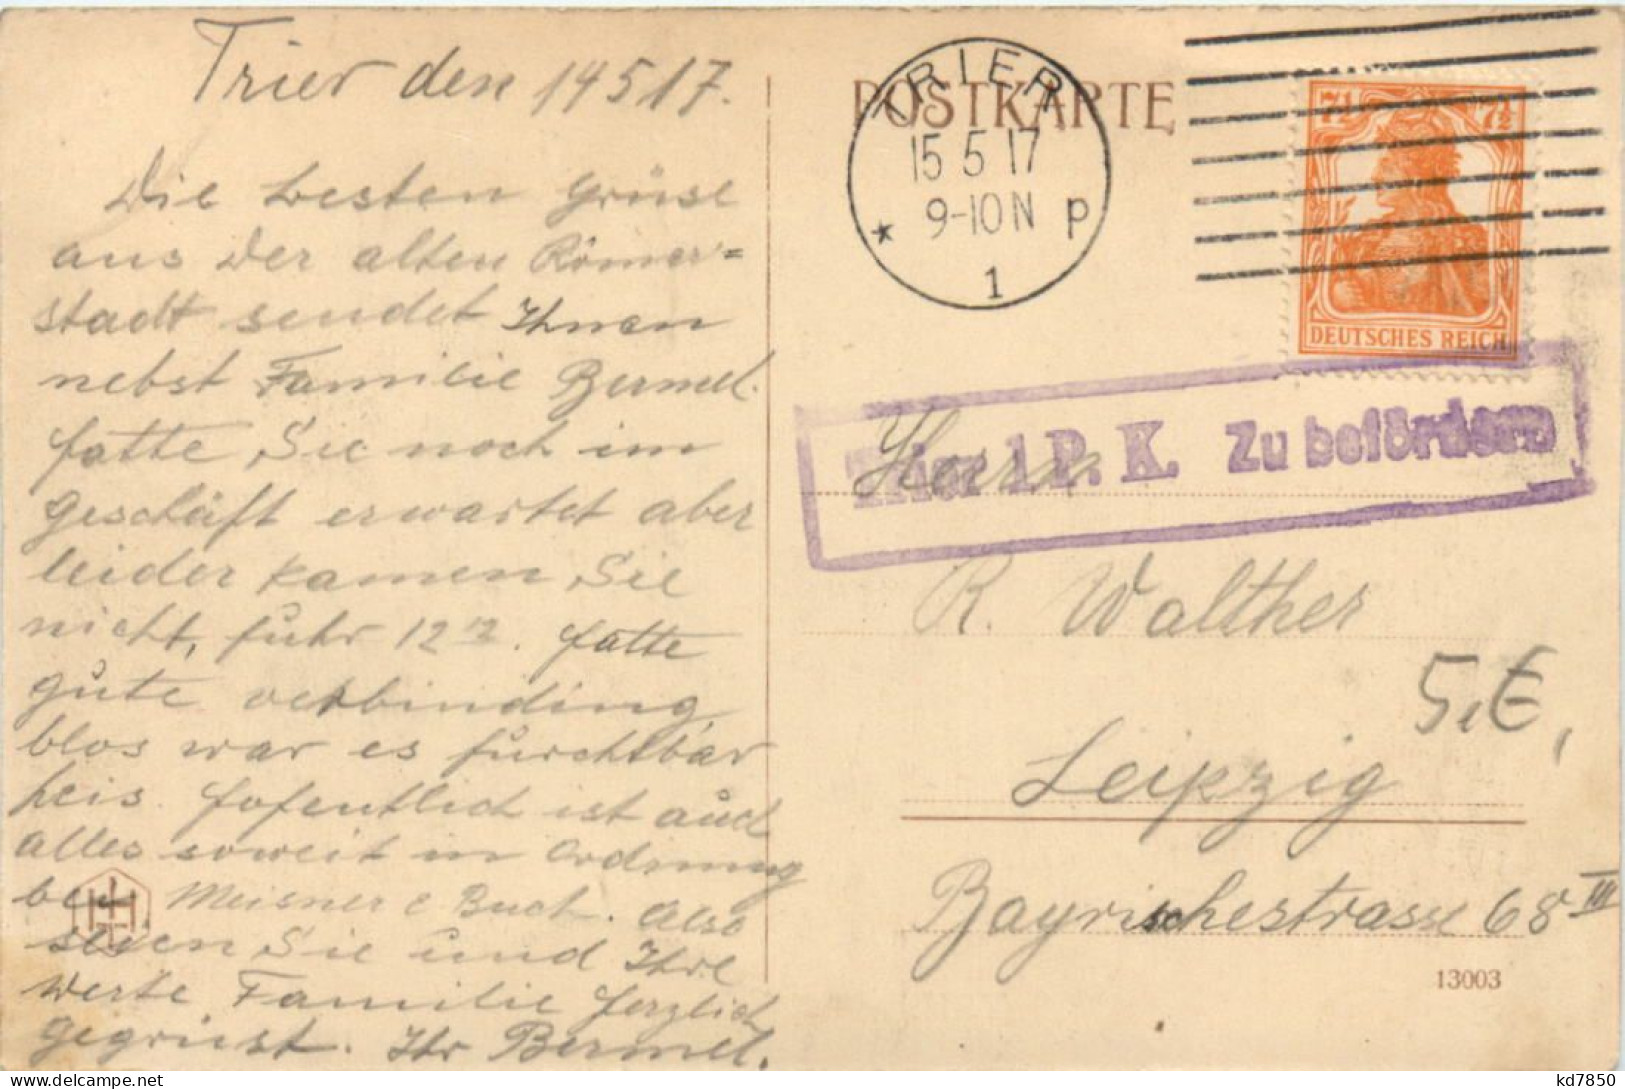 Trier den 14 5 17.
Die besten Grüse
aus der alten Römer=
stadt sendet Ihnen
nebst Familie Bermel.
hatte Sie noch im
geschäft erwartet aber
leider kamen Sie
nicht, fuhr 12 12. hatte
gute verbinding
blos war es furchtbar
heis. hofentlich ist auch
alles soweit in Ordnung
bei Meisner & Buch. Also
seien Sie und Ihre
werte Familie herzlich
gegrüst. Ihr Bermel.
POSTKARTE
TRIER
15 5 17
9-10 N
* p
1
7½ 7½
DEUTSCHES REICH
Trier 1 P. K. Zu befördern
Herrn
R. Walther
5,€,
Leipzig
Bayrischestrasse 68 III
13003
kd7850